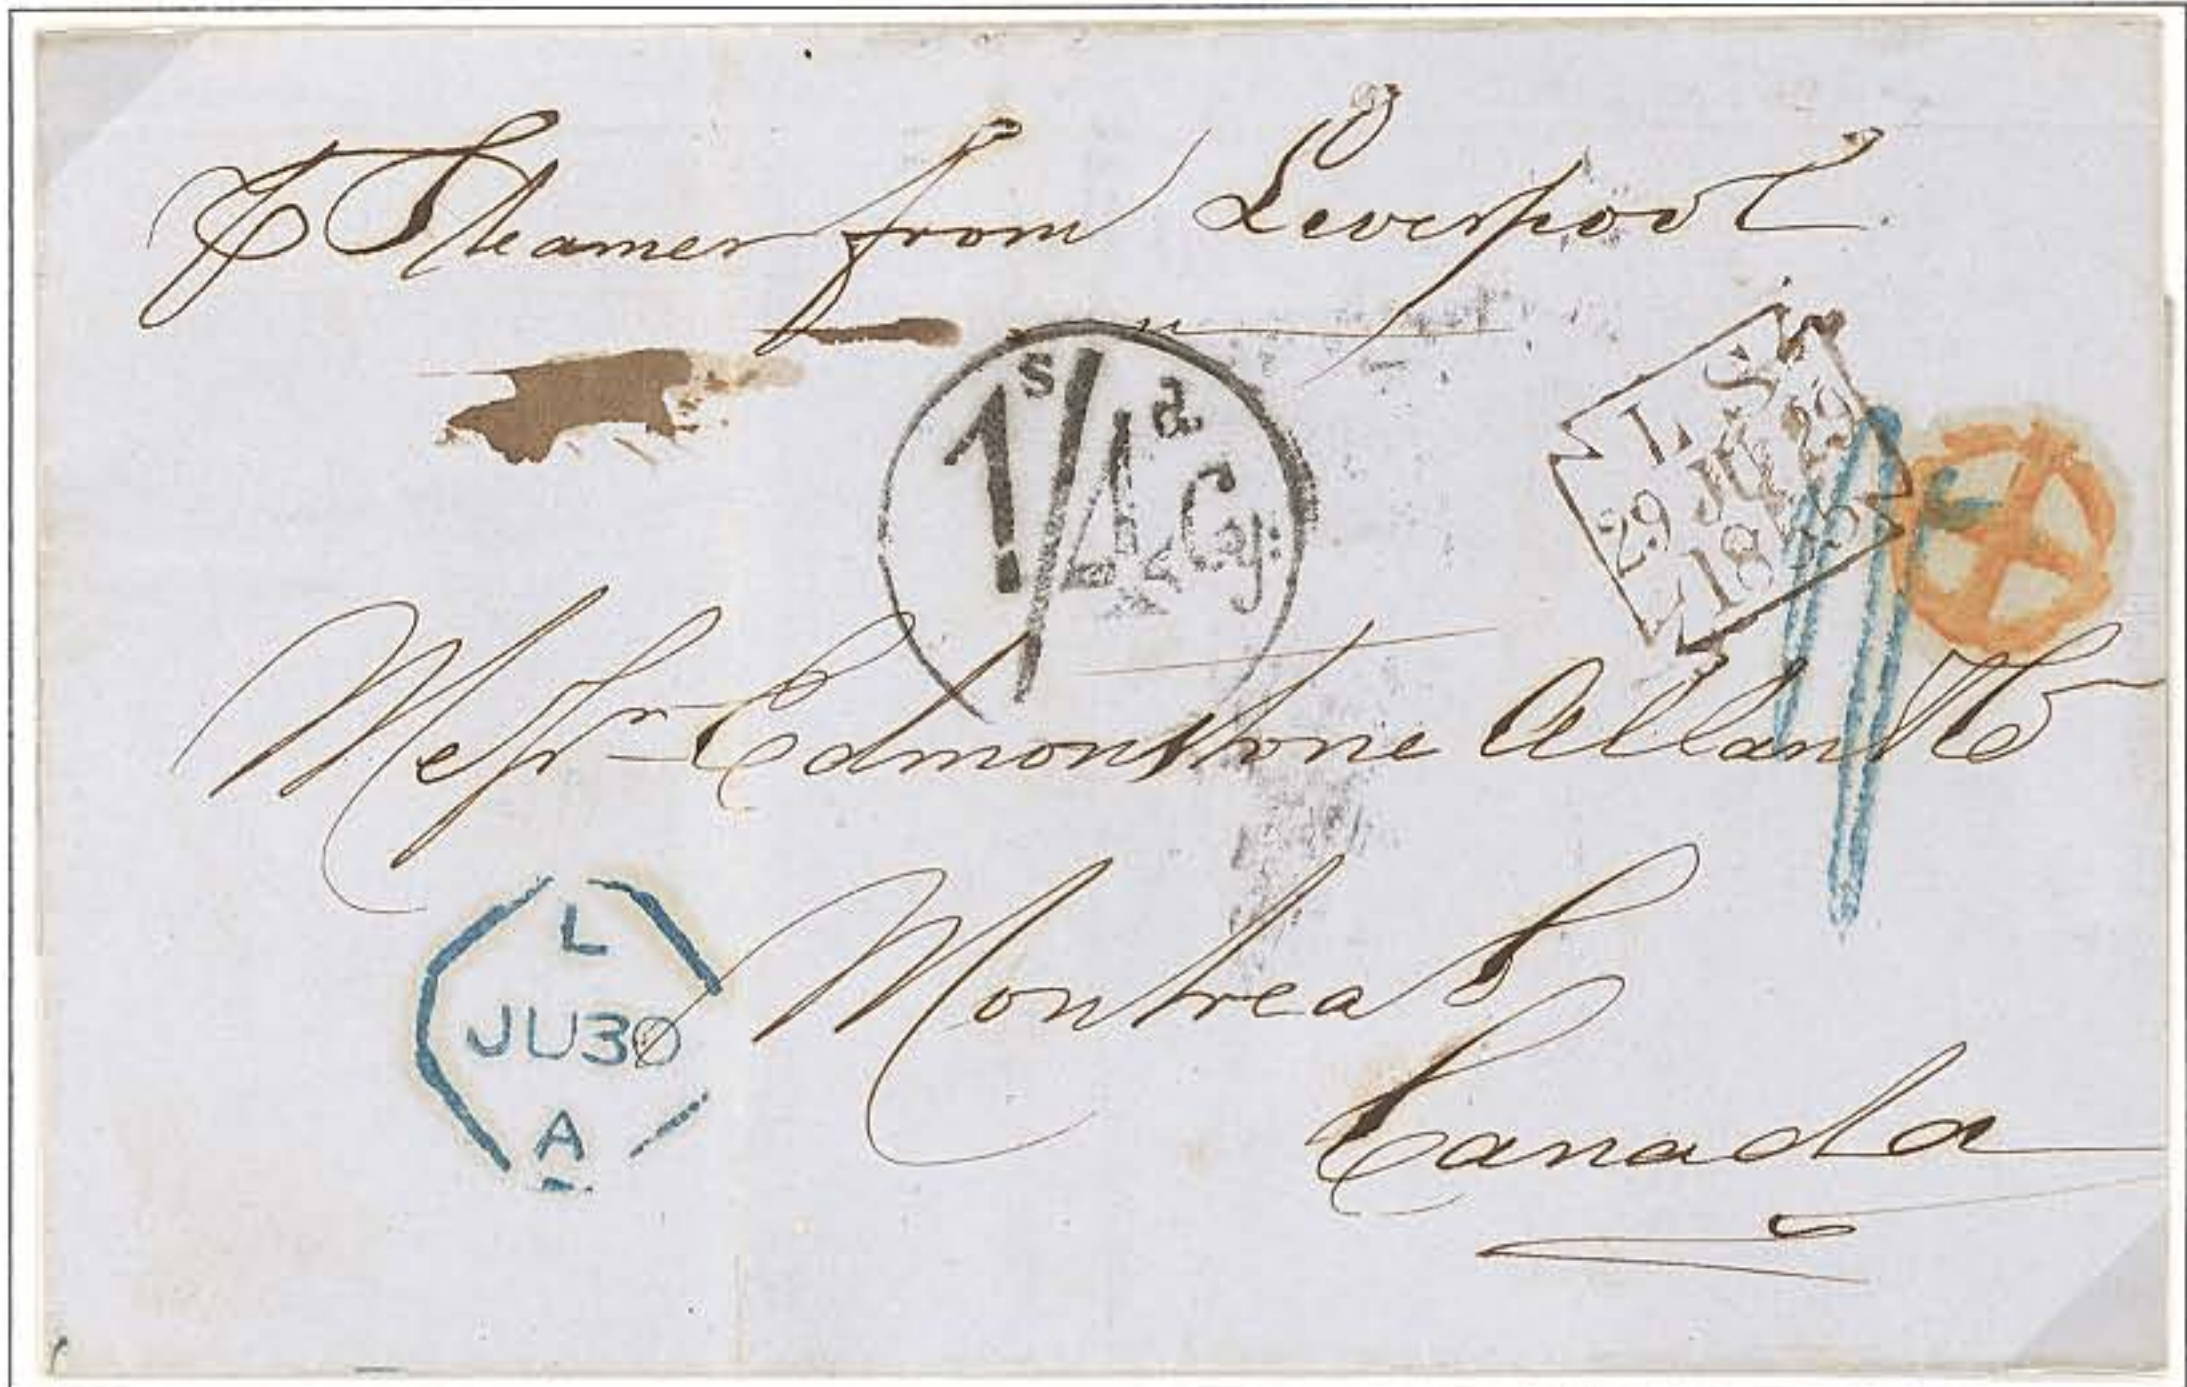 ⅌ Steamer from Liverpool
1s/4d Cy:
L S
29 JU 29
1855
Messrs Edmonstone Allan & Co
Montreal
Canada
L
JU30
A